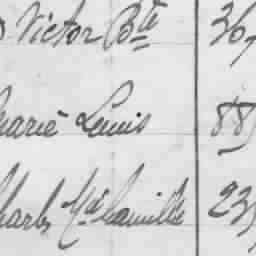 Victor Bte 36
Marie Louis 88
Charles Mie Camille 23